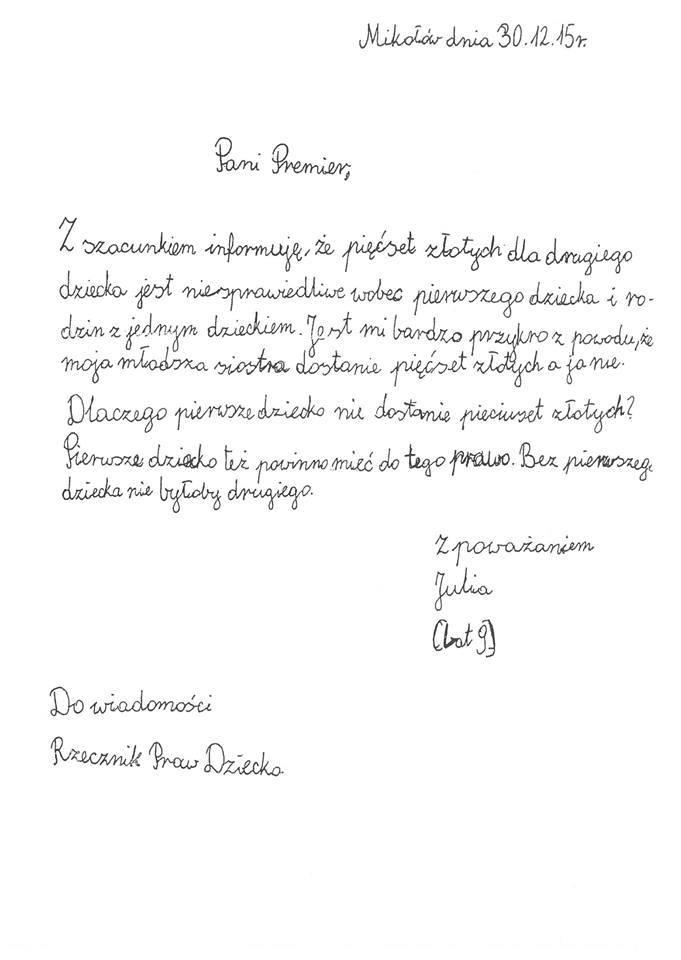 Mikołów dnia 30.12.15r.
Pani Premier,
Z szacunkiem informuję, że pięćset złotych dla drugiego
dziecka jest niesprawiedliwe wobec pierwszego dziecka i ro-
dzin z jednym dzieckiem. Jest mi bardzo przykro z powodu, że
moja młodsza siostra dostanie pięćset złotych a ja nie.
Dlaczego pierwsze dziecko nie dostanie pieciuset złotych?
Pierwsze dziecko też powinno mieć do tego prawo. Bez pierwszego
dziecka nie byłoby drugiego.
Z poważaniem
Julia
(lat 9)
Do wiadomości
Rzecznik Praw Dziecka